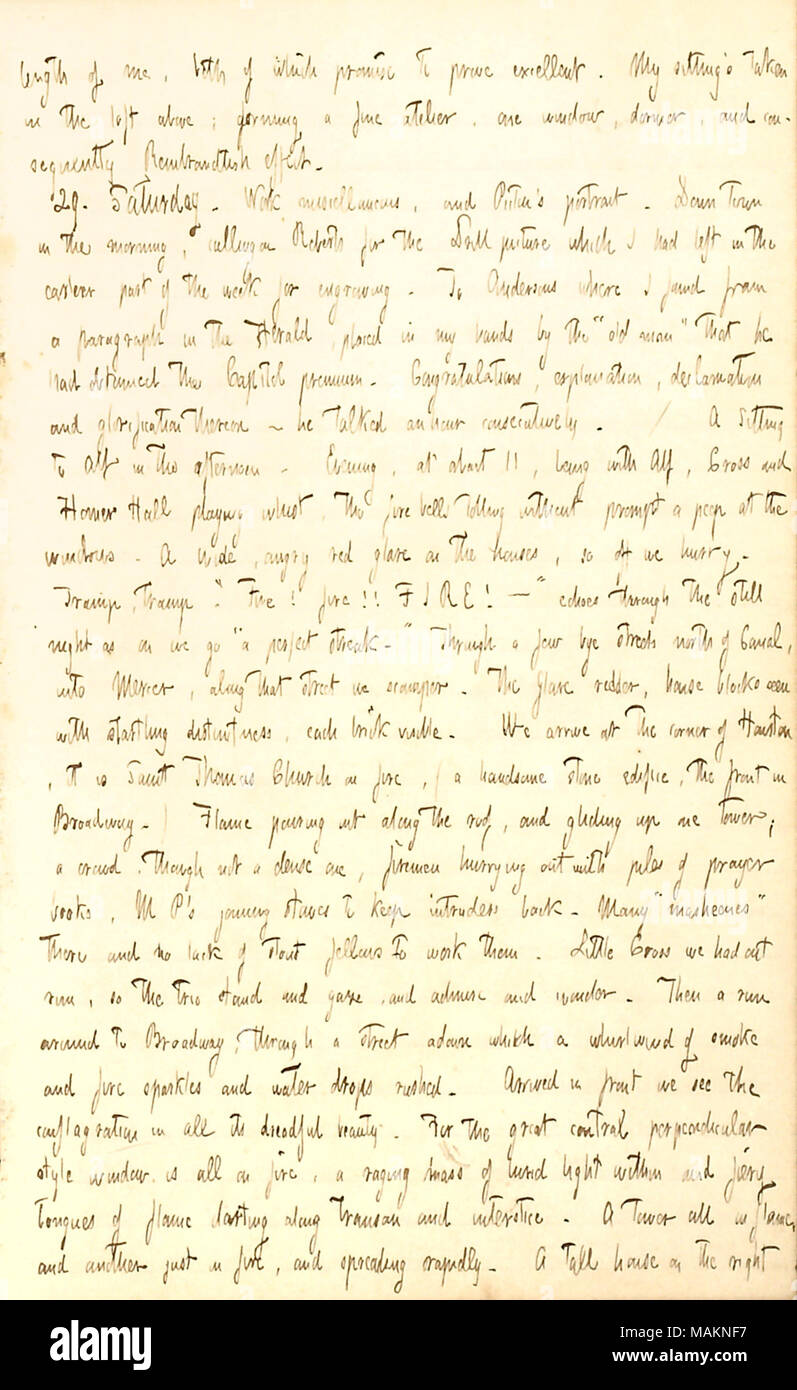 length of me, both of which promise to prove excellent. My sitting's taken
in the loft above; forming a fine atelier, one window, dormer, and con-
sequently Rembrandtish effect.
29. Saturday. Work miscellaneous, and Picton's portrait. Down town
in the morning, calling on Roberts for the Drill picture which I had left in the
earlier part of the week for engraving. To Andersons where I found from
a paragraph in the Herald, placed in my hands by the "old man" that he
had obtained the Capitol premium. Congratulations, explanation, declamation
and glorification thereon ~ he talked an hour consecutively. / A Sitting
to Alf in the afternoon. Evening, at about 11, being with Alf, Cross and
Homer Hall playing whist, the fire bells tolling without prompt a peep at the
windows. A wide, angry red glare on the houses, so off we hurry.
Tramp, tramp. "Fire! fire!! FIRE! —" echoes through the still
night as on we go "a perfect streak." Through a few bye streets north of Canal,
into Mercer, along that street we scamper. The glare redder, house blocks seen
with startling distinctness, each brick visible. We arrive at the corner of Houston
, it is Saint Thomas Church on fire, (a handsome stone edifice, the front in
Broadway.) Flame pouring out along the roof, and gliding up one tower;
a crowd, though not a dense one, firemen hurrying out with piles of prayer
books, M P's joining staves to keep intruders back. Many "masheenes"
there and no lack of stout fellows to work them. Little Cross we had out
run, so the trio stand and gaze, and admire and wonder. Then a run
around to Broadway, through a street adown which a whirlwind of smoke
and fire sparkles and water drops rushed. Arrived in front we see the
conflagration in all its dreadful beauty. For the great central perpendicular
style window is all on fire, a raging mass of lurid light within and fiery
tongues of flame darting along transom and interstice. A tower all in flame,
and another just on fire, and spreading rapidly. A tall house on the right
alamy
Image ID: MAKNF7
www.alamy.com